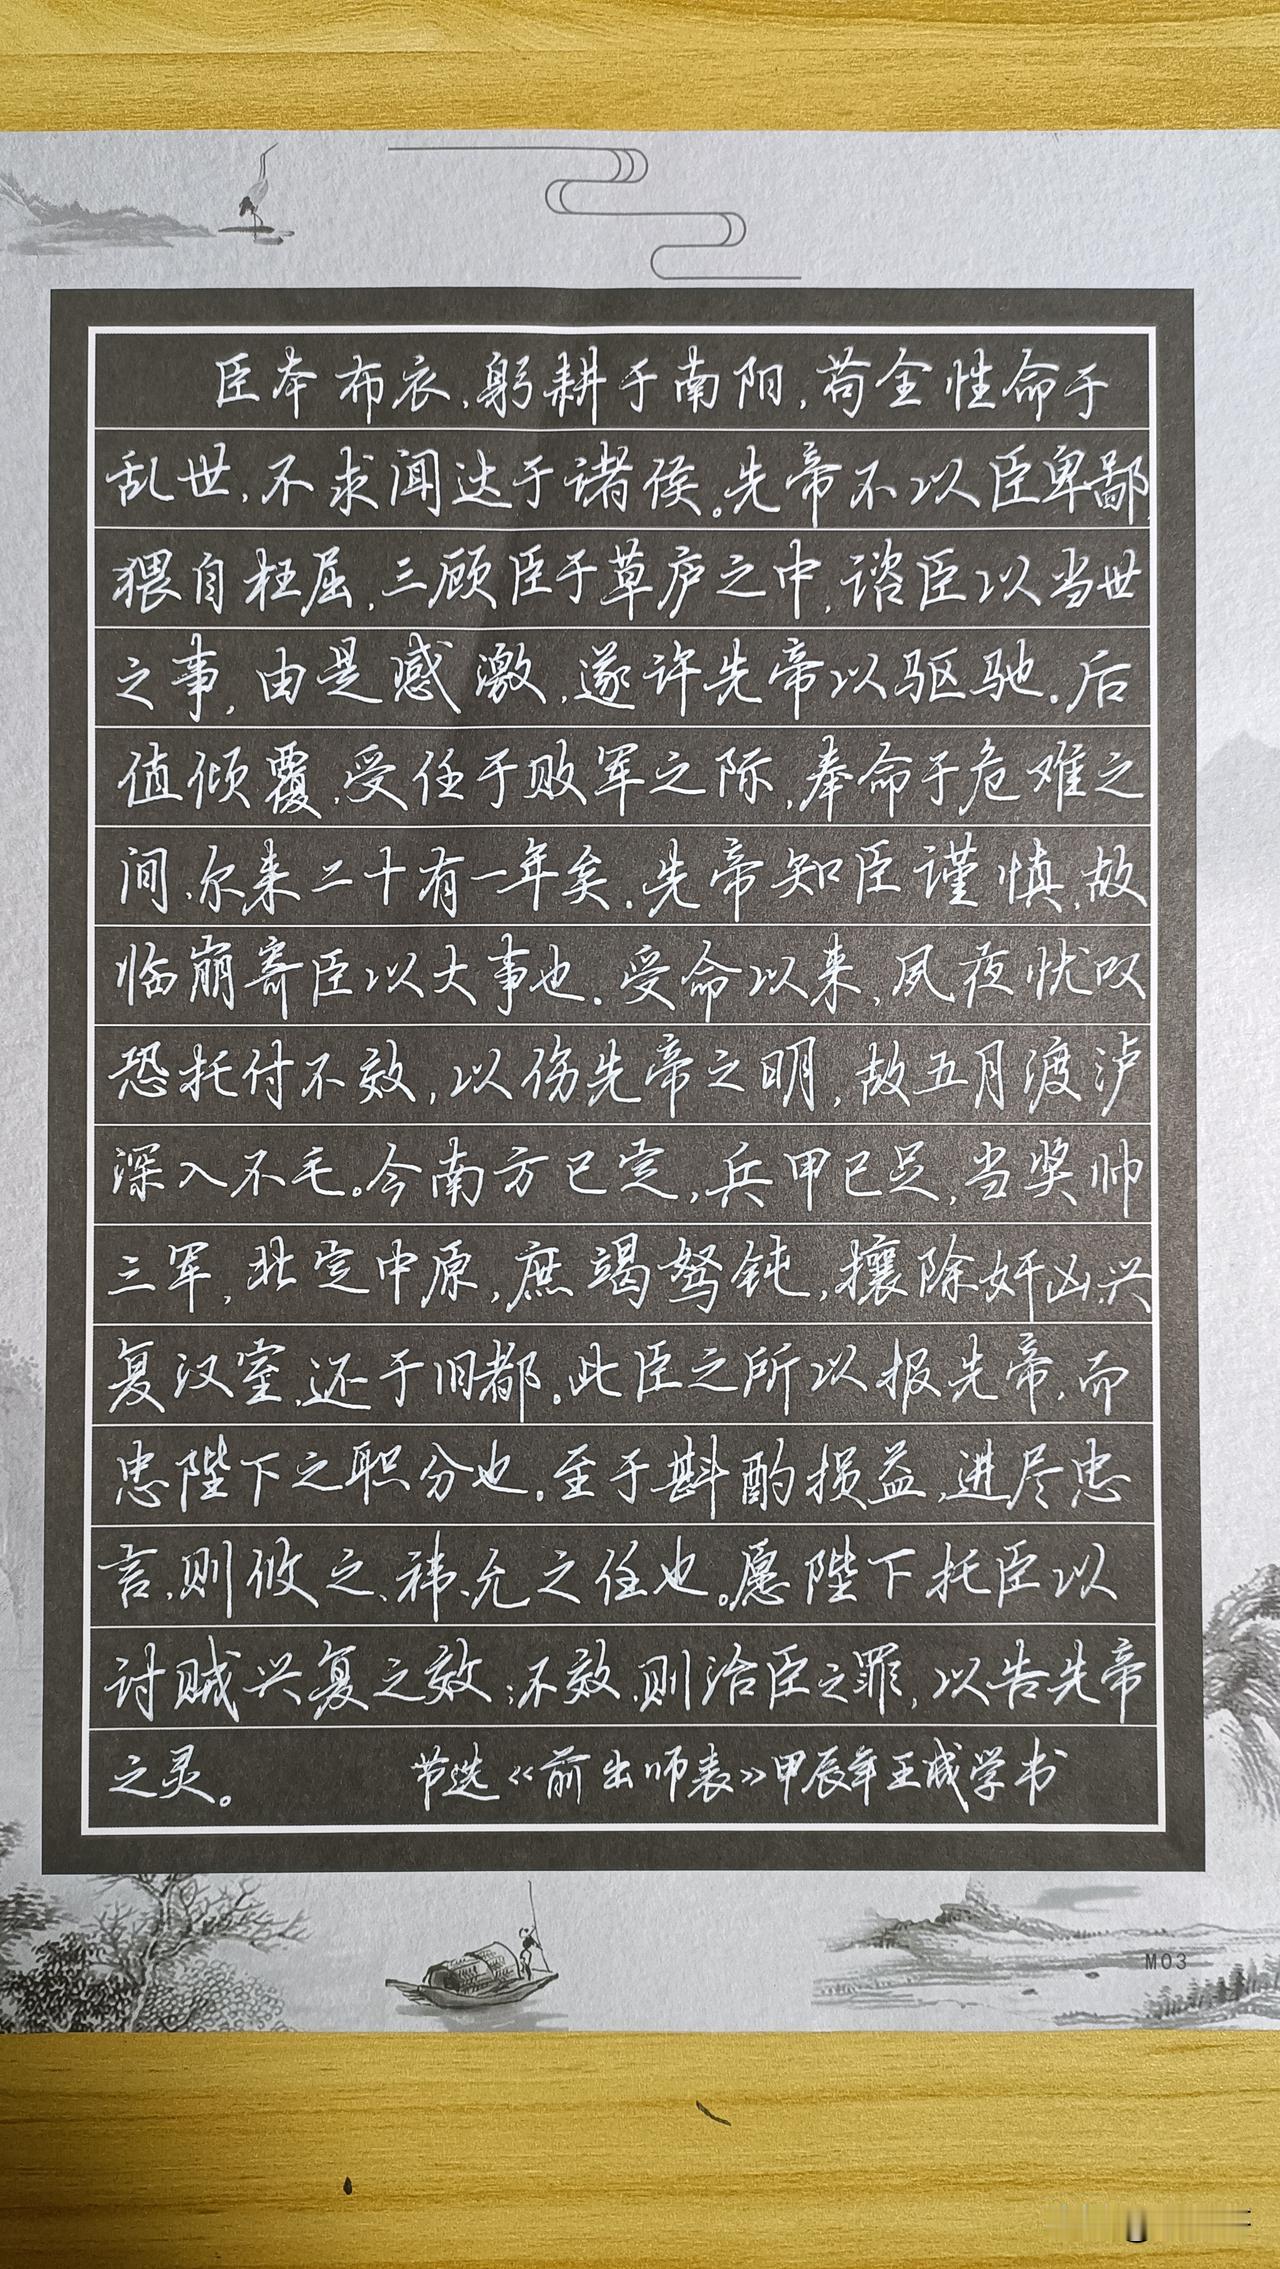 臣本布衣,躬耕于南阳,苟全性命于
乱世,不求闻达于诸侯。先帝不以臣卑鄙,
猥自枉屈,三顾臣于草庐之中,谘臣以当世
之事,由是感激,遂许先帝以驱驰。后
值倾覆,受任于败军之际,奉命于危难之
间,尔来二十有一年矣。先帝知臣谨慎,故
临崩寄臣以大事也。受命以来,夙夜忧叹
恐托付不效,以伤先帝之明,故五月渡泸
深入不毛。今南方已定,兵甲已足,当奖帅
三军,北定中原,庶竭驽钝,攘除奸凶,兴
复汉室,还于旧都。此臣之所以报先帝,而
忠陛下之职分也。至于斟酌损益,进尽忠
言,则攸之、祎、允之任也。愿陛下托臣以
讨贼兴复之效;不效,则治臣之罪,以告先帝
之灵。 节选《前出师表》甲辰年王成学书
M03